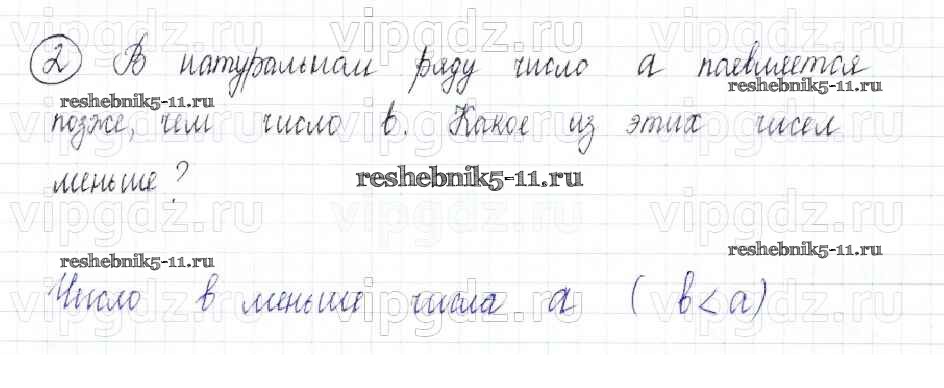 vipgdz.ru vipgdz.ru vipgdz.ru
② В натуральном ряду число a появляется
reshebnik5-11.ru reshebnik5-11.ru
позже, чем число b. Какое из этих чисел
vipgdz.ru vipgdz.ru vipgdz.ru
меньше?
reshebnik5-11.ru
vipgdz.ru vipgdz.ru vipgdz.ru
reshebnik5-11.ru reshebnik5-11.ru
Число b меньше числа a (b < a)
vipgdz.ru vipgdz.ru vipgdz.ru